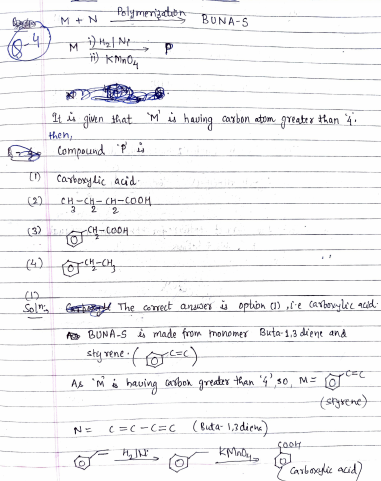 M + N Polymerization → BUNA-S
Q-4
M i) H2/Ni → P
ii) KMnO4
It is given that 'M' is having carbon atom greater than '4'.
then,
Compound 'P' is
(1) Carboxylic acid.
(2) CH3-CH2-CH2-COOH
(3) CH2-COOH
(4) CH2-CH3
(1)
Soln. The correct answer is option (1), i.e carboxylic acid.
BUNA-S is made from monomer Buta-1,3 diene and
styrene. ( C=C )
As 'M' is having carbon greater than '4' so, M = C=C
(styrene)
N = C=C-C=C (Buta-1,3diene)
H2/Ni → KMnO4 → COOH
(Carboxylic acid)